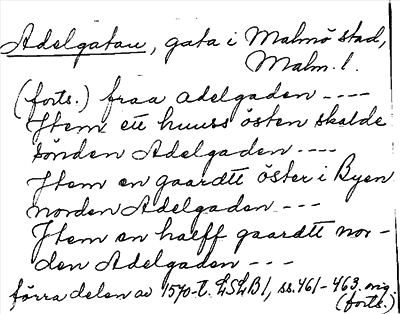 Adelgatan, gata i Malmö stad,
Malm. l.
(forts.) fraa Adelgaden ----
Jtem ett huuss östen skalde
sönden Adelgaden ----
Jtem en gaardtt öster i Byen
norden Adelgaden ---
Jtem en halff gaardtt nor-
den Adelgaden ---
förra delen av 1570-t. LSLB1, ss. 461-463. orig.
(forts.)